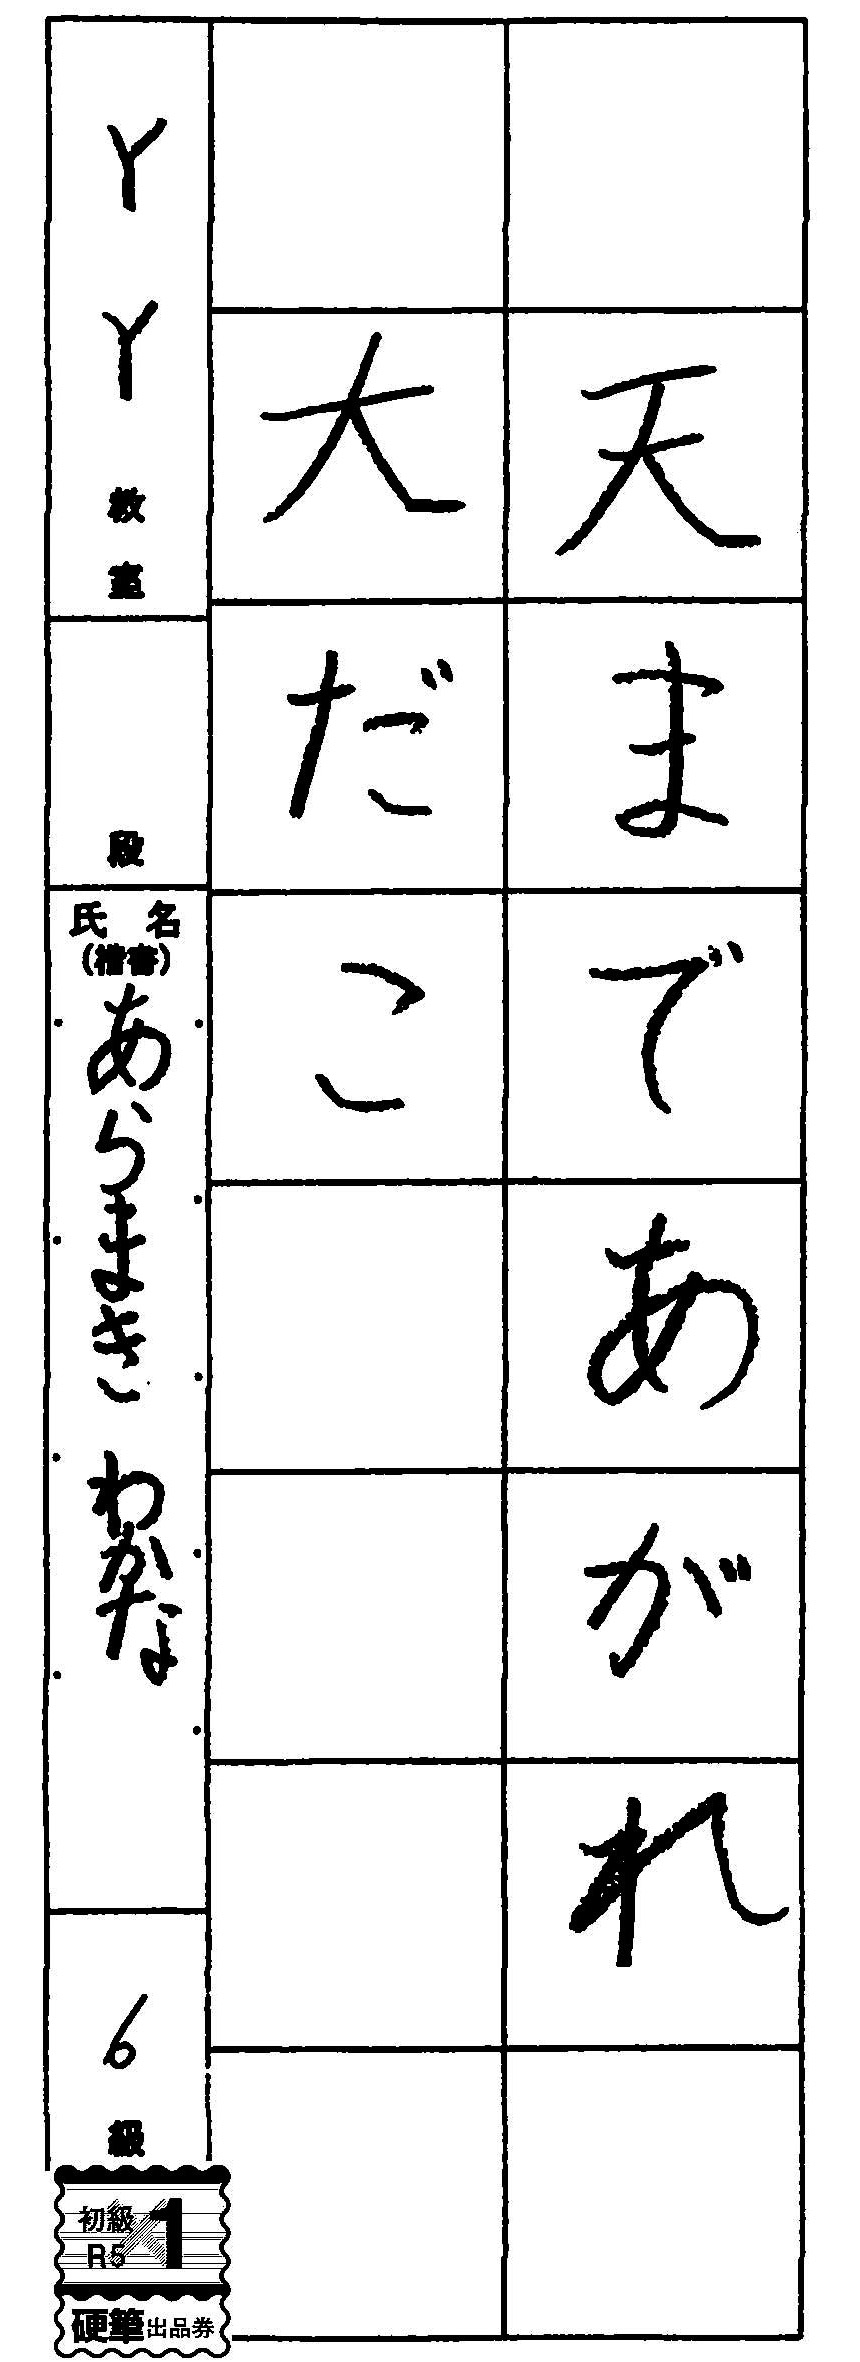 天まであがれ
大だこ
YY教室
段
氏名
(楷書)
あらまきわかな
6級
初級
R5
1
硬筆出品券